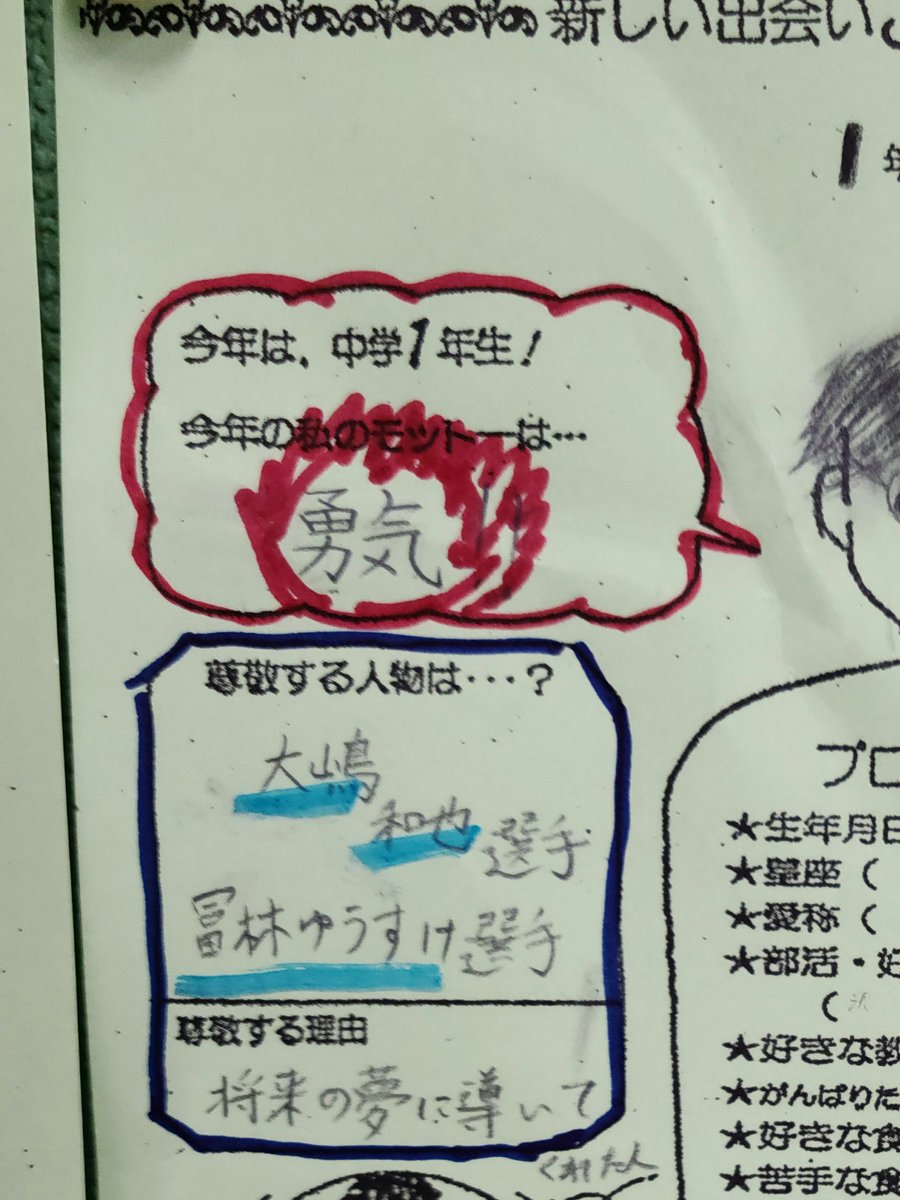 新しい出会い
1年
今年は、中学1年生!
今年の私のモットーは…
勇気!!
尊敬する人物は…?
大嶋
和也選手
冨林ゆうすけ選手
尊敬する理由
将来の夢に導いて
くれた人
プロ
★生年月日
★星座(
★愛称(
★部活・好
(
★好きな教
★がんばりた
★好きな食
★苦手な食